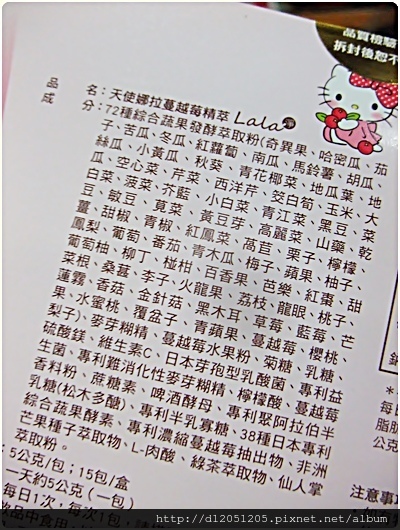 品質檢驗
拆封後恕不
品名：天使娜拉蔓越莓精萃 LaLa
成分：72種綜合蔬果發酵萃取粉(奇異果、哈密瓜、茄
子、苦瓜、冬瓜、紅蘿蔔、南瓜、馬鈴薯、胡瓜、
絲瓜、小黃瓜、秋葵、青花椰菜、地瓜葉、地
瓜、空心菜、芹菜、西洋芹、筊白筍、玉米、大
白菜、菠菜、芥藍、小白菜、青江菜、黑豆、菜
豆、敏豆、莧菜、黃豆芽、高麗菜、山藥、乾
薑、甜椒、青椒、紅鳳菜、萵苣、栗子、檸檬、
鳳梨、葡萄、番茄、青木瓜、梅子、蘋果、柚子、
葡萄柚、柳丁、椪柑、百香果、芭樂、紅棗、甜
菜根、桑葚、李子、火龍果、荔枝、龍眼、桃子、
蓮霧、香菇、金針菇、黑木耳、草莓、藍莓、芒
果、水蜜桃、覆盆子、青蘋果、蔓越莓、櫻桃、
梨子)、麥芽糊精、蔓越莓水果粉、菊糖、乳糖、
硫酸鎂、維生素C、日本芽孢型乳酸菌、專利益
生菌、專利難消化性麥芽糊精、檸檬酸、蔓越莓
香料粉、蔗糖素、啤酒酵母、專利聚阿拉伯半
乳糖(松木多醣)、專利半乳寡糖、38種日本專利
綜合蔬果酵素、專利濃縮蔓越莓抽出物、非洲
芒果種子萃取物、L-肉酸、綠茶萃取物、仙人掌
萃取粉。
：5公克/包；15包/盒
一天約5公克（一包）
每日1次，每次1包，
每日
脂肪
公克
注意事項
http://d12051205.pixnet.net/album